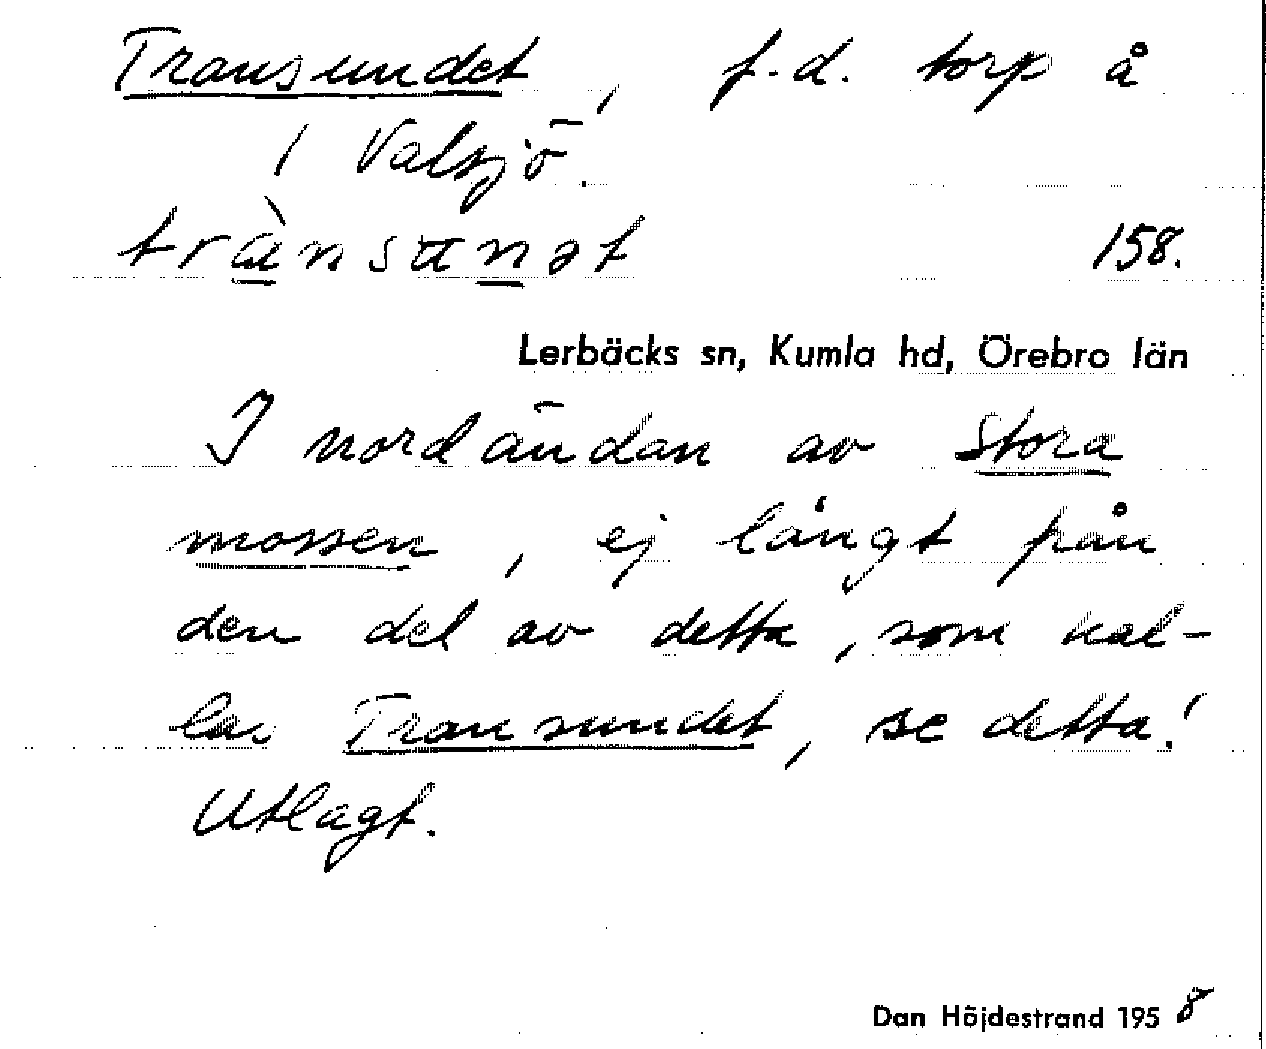 Transundet, f.d. torp å
1 Valsjö.
trànsunət 158.
Lerbäcks sn, Kumla hd, Örebro län
I nordändan av Stora
mossen, ej långt från
den del av detta, som kal-
las Transundet, se detta!
Utlagt.
Dan Höjdestrand 1958